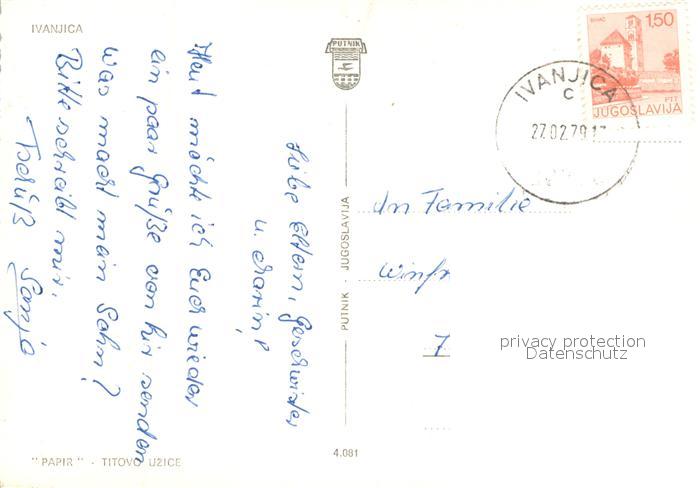 IVANJICA
PUTNIK
BIHAĆ
1,50
PTT
JUGOSLAVIJA
IVANJICA
C
27.02.79.17
Liebe Eltern, Geschwister
u.
Heut möcht ich Euch wieder
ein paar Grüße von hir senden
was macht mein Sohn?
Bitte schreibt mir,
Gruß Sanja
PUTNIK - JUGOSLAVIJA
An Familie
Winfr
7
privacy protection
Datenschutz
"PAPIR" - TITOVO UŽICE
4.081